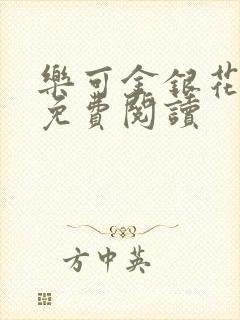 樂可金銀花
免費閱讀
方中英